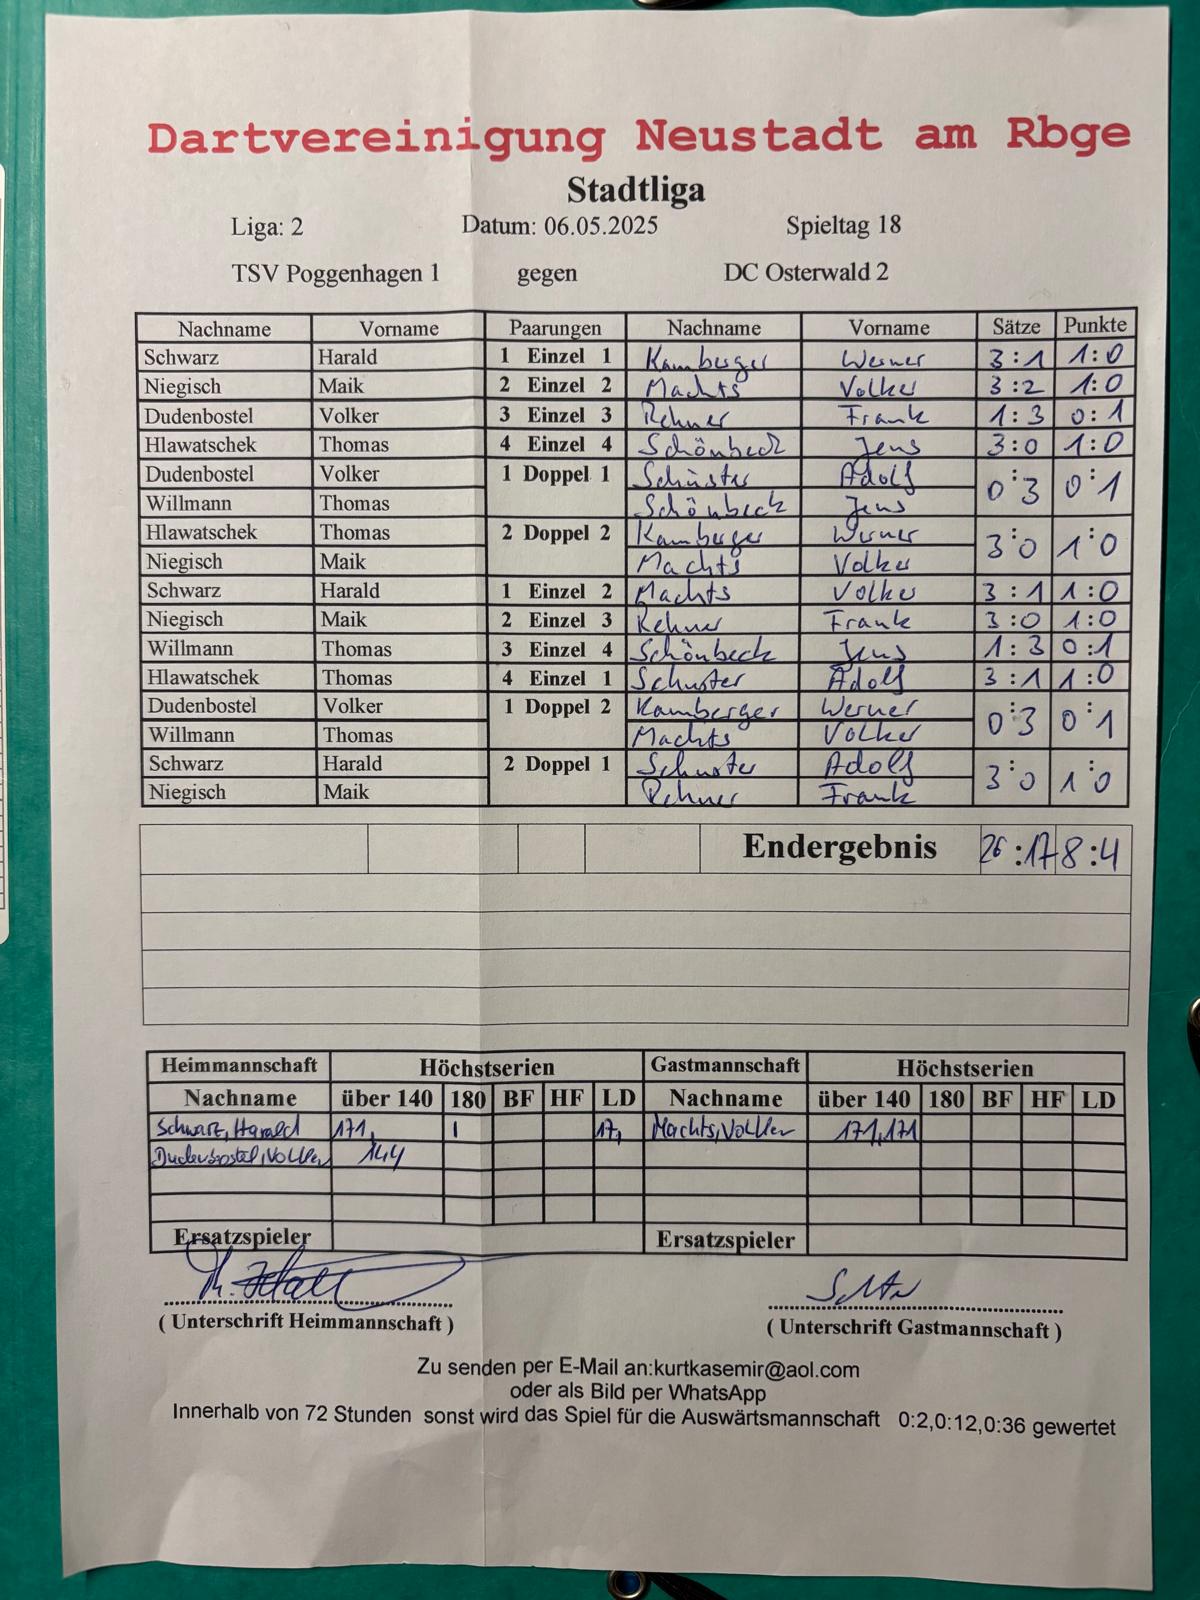 Dartvereinigung Neustadt am Rbge
Stadtliga
Liga: 2 Datum: 06.05.2025 Spieltag 18
TSV Poggenhagen 1 gegen DC Osterwald 2
Nachname Vorname Paarungen Nachname Vorname Sätze Punkte
Schwarz Harald 1 Einzel 1 Kamberger Werner 3:1 1:0
Niegisch Maik 2 Einzel 2 Machts Volker 3:2 1:0
Dudenbostel Volker 3 Einzel 3 Rehner Frank 1:3 0:1
Hlawatschek Thomas 4 Einzel 4 Schönbeck Jens 3:0 1:0
Dudenbostel Volker 1 Doppel 1 Schuster Adolf 0:3 0:1
Willmann Thomas Schönbeck Jens
Hlawatschek Thomas 2 Doppel 2 Kamberger Werner 3:0 1:0
Niegisch Maik Machts Volker
Schwarz Harald 1 Einzel 2 Machts Volker 3:1 1:0
Niegisch Maik 2 Einzel 3 Rehner Frank 3:0 1:0
Willmann Thomas 3 Einzel 4 Schönbeck Jens 1:3 0:1
Hlawatschek Thomas 4 Einzel 1 Schuster Adolf 3:1 1:0
Dudenbostel Volker 1 Doppel 2 Kamberger Werner 0:3 0:1
Willmann Thomas Machts Volker
Schwarz Harald 2 Doppel 1 Schuster Adolf 3:0 1:0
Niegisch Maik Rehner Frank
Endergebnis 26:17 8:4
Heimmannschaft Höchstserien Gastmannschaft Höchstserien
Nachname über 140 180 BF HF LD Nachname über 140 180 BF HF LD
Schwarz, Harald 171, I 17, Machts, Volker 171,171
Dudenbostel, Volker 144
Ersatzspieler Ersatzspieler
( Unterschrift Heimmannschaft ) ( Unterschrift Gastmannschaft )
Zu senden per E-Mail an:kurtkasemir@aol.com
oder als Bild per WhatsApp
Innerhalb von 72 Stunden sonst wird das Spiel für die Auswärtsmannschaft 0:2,0:12,0:36 gewertet